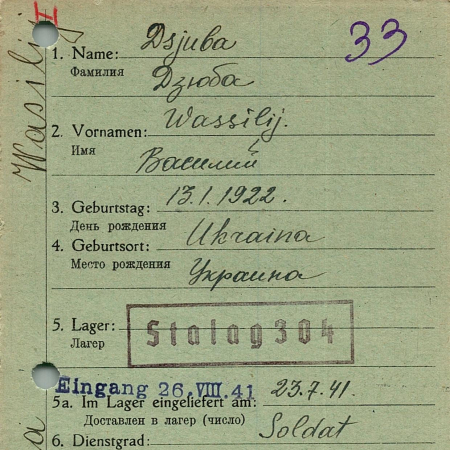 Wassilij
33
1. Name: Dsjuba
Фамилия Дзюба
2. Vornamen: Wassilij.
Имя
Василий
3. Geburtstag: 13.1.1922.
День рождения
4. Geburtsort: Ukraina
Место рождения Украина
5. Lager: Stalag 304
Лагер
Eingang 26.VIII.41 23.7.41.
5a. Im Lager eingeliefert am:
Доставлен в лагер (число)
6. Dienstgrad: Soldat